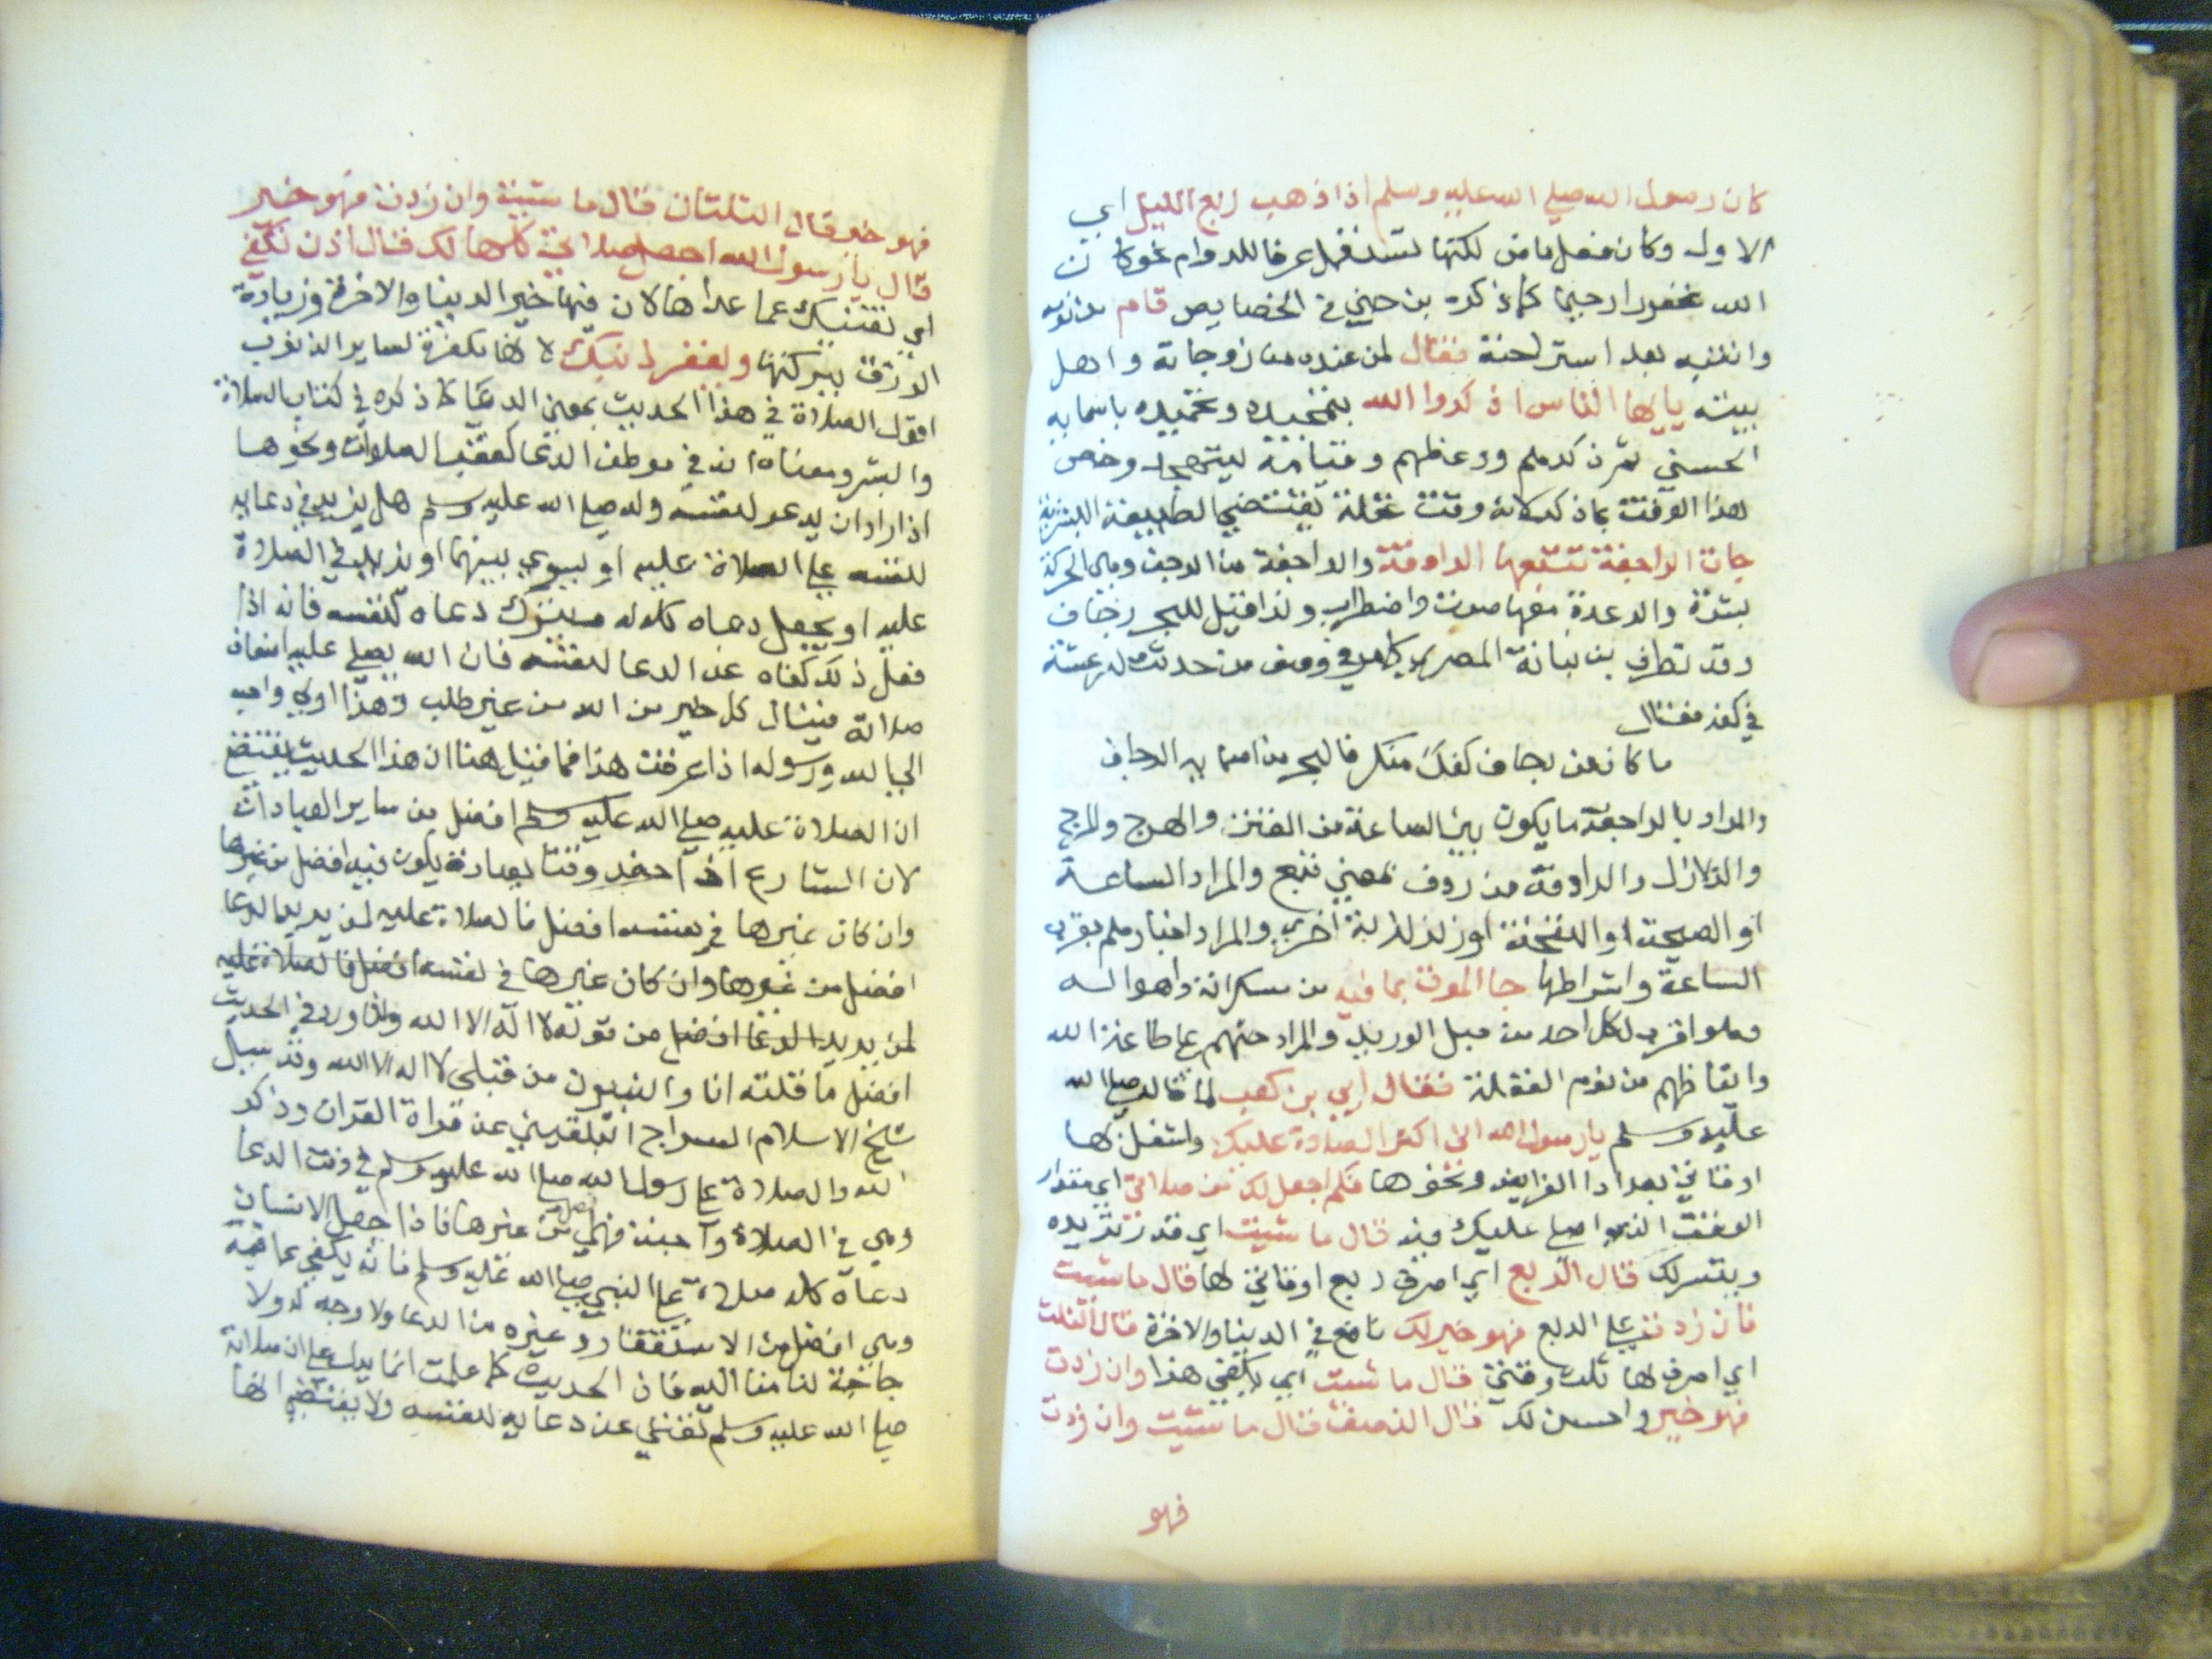 كان رسول الله صلي الله عليه وسلم اذا ذهب ربع الليل اي
الاول وكان فعل ماض لكنها تستعمل عرفا للدوام نحو كان
الله غفورا رحيما كما ذكره بن جني في الخصايص قام من نومه
وانتبه بعد استراحته فقال لمن عنده من زوجاته واهل
بيته يايها الناس اذكروا الله بتمجيده وتحميده باسمايه
الحسني ثم ذكرهم ووعظهم وقيامه ليتهجد وخص
هذا الوقت بما ذكر لانه وقت غفلة يقتضيها لطبيعة البشرية
جات الراجفة تتبعها الرادفة والراجفة من الرجف وهي الحركة
بشدة والرعدة معها صوت واضطراب ولذا قيل للبحر رجاف
وقد تظرف بن نباتة المصري كما في وصف من حدث له رعشة
في كفه فقال
ما كان عن رجاف كفك منكر فالبحر من اسمايه الرجاف
والمراد بالراجفة ما يكون بين الساعة من الفتن والهرج والمرج
والزلازل والرادفة من ردف بمعني تبع والمراد الساعة
او الصيحة او النفخة او زلزلة اخري والمراد اخبارهم بقرب
الساعة واشراطها جا الموت بما فيه من سكراته واهواله
وهو اقرب لكل احد من حبل الوريد والمراد حثهم علي طاعة الله
وايقاظهم من نوم الغفلة فقال ابي بن كعب لما قاله صلي الله
عليه وسلم يا رسول الله اني اكثر الصلاة عليك واشغل بها
اوقاتي بعد ادا الفرايض ونحوها فكم اجعل لك من صلاتي اي مقدار
الوقت الذي اصلي عليك فيه قال ما شيت اي قدر تريده
ويتيسر لك قال الربع اي اصرف ربع اوقاتي لها قال ما شيت
فان زدت علي الربع فهو خير لك نافع في الدنيا والاخرة قال الثلث
اي اصرف لها ثلث وقتي قال ما شيت اي يكفي هذا وان زدت
فهو خير واحسن لك قال النصف قال ما شيت وان زدت
فهو
فهو خير قال الثلثان قال ما شيت وان زدت فهو خير
قال يا رسول الله اجعل صلاتي كلها لك قال اذن تكفي
اي تغنيك عما عداها لان فيها خير الدنيا والاخرة وزيادة
الرزق ببركتها ويغفر ذنبك لانها مكفرة لساير الذنوب
اقول الصلاة في هذا الحديث بمعني الدعا كما ذكره في كتاب الصلاة
والبشر ومعناه ان في موطن الدعا كعقب الصلوات ونحوها
اذا اراد ان يدعو لنفسه وله صلي الله عليه وسلم هل يزيد في دعايه
لنفسه علي الصلاة عليه او يسوي بينهما او يزيد في الصلاة
عليه او يجعل دعاه كله له فيترك دعاه لنفسه فانه اذا
فعل ذلك كفاه عن الدعا لنفسه فان الله يصلي عليه اضعاف
صلاته فينال كل خير من الله من غير طلب وهذا اولي واحب
الي الله ورسوله اذا عرفت هذا فما قيل هنا ان هذا الحديث يقتضي
ان الصلاة عليه صلي الله عليه وسلم افضل من ساير العبادات
لان الشارع اذا وقتا بعبادة يكون فيه افضل من غيرها
وان كان غيرها في نفسه افضل فالصلاة عليه لمن يريد الدعا
افضل من غيرها وان كان غيرها في نفسه افضل فالصلاة عليه
لمن يريد الدعا افضل من قوله لا اله الا الله وان ورد في الحديث
افضل ما قلته انا والنبيون من قبلي لا اله الا الله وقد سيل
شيخ الاسلام السراج البلقيني عن قراة القران وذكر
الله والصلاة علي رسول الله صلي الله عليه وسلم في وقت الدعا
وهي في الصلاة واجبة فهي افضل من غيرها فاذا جعل الانسان
دعاه كله صلاة علي النبي صلي الله عليه وسلم فانه يكفي
وهي افضل من الاستغفار وغيره من الدعا ولا وجه له ولا
حاجة لنا فان الحديث كما علمت انما يدل علي ان صلاته
صلي الله عليه وسلم تغني عن دعايه لنفسه ولا يقتضي انها